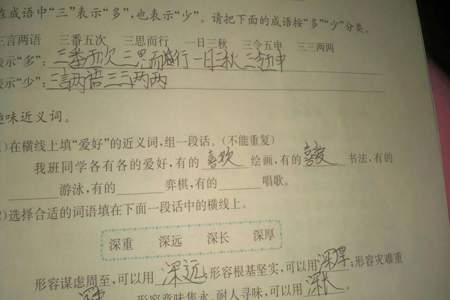 在成语中“三”表示“多”,也表示“少”。请把下面的成语按“多”“少”分类。
三言两语 三番五次 三思而行 一日三秋 三令五申 三三两两
表示“多”：三番五次 三思而行 一日三秋 三令五申
表示“少”：三言两语 三三两两
趣味近义词。
)在横线上填“爱好”的近义词,组一段话。(不能重复)
我班同学各有各的爱好,有的 喜欢 绘画,有的 喜爱 书法,有的
游泳,有的 弈棋,有的 唱歌。
)选择合适的词语填在下面一段话中的横线上。
深重 深远 深长 深厚
形容谋虑周至,可以用 深远;形容根基坚实,可以用 深厚;形容灾难重
形容意味隽永、耐人寻味,可以用 深长